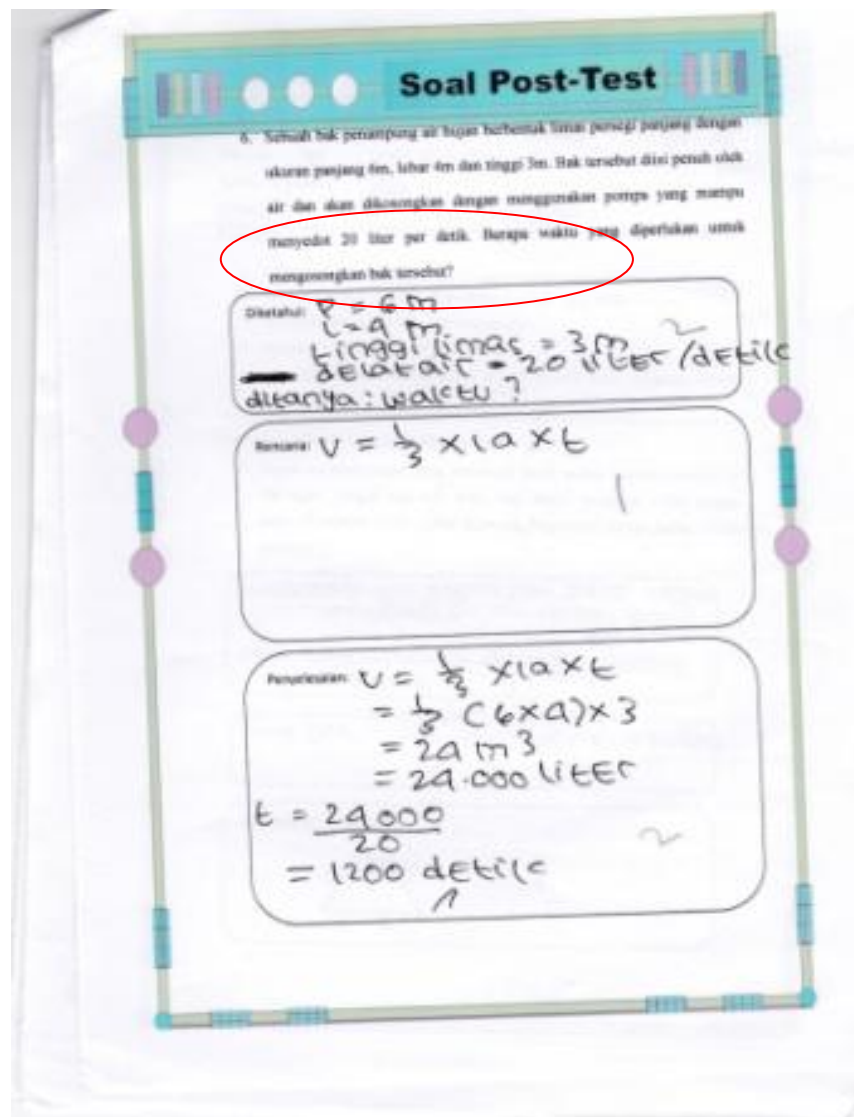 Soal Post-Test
6. Sebuah bak penampung air hujan berbentuk limas persegi panjang dengan
ukuran panjang 6m, lebar 4m dan tinggi 3m. Bak tersebut diisi penuh oleh
air dan akan dikosongkan dengan menggunakan pompa yang mampu
menyedot 20 liter per detik. Berapa waktu yang diperlukan untuk
mengosongkan bak tersebut?
Diketahui: P = 6 m
L = 4 m
tinggi limas = 3 m
2
= 20 liter/detik
ditanya: waktu?
Rencana: V = 1/3 x la x t
1
Penyelesaian: V = 1/3 x la x t
= 1/3 (6x4) x 3
= 24 m3
= 24.000 liter
t = 24000
20
2
= 1200 detik